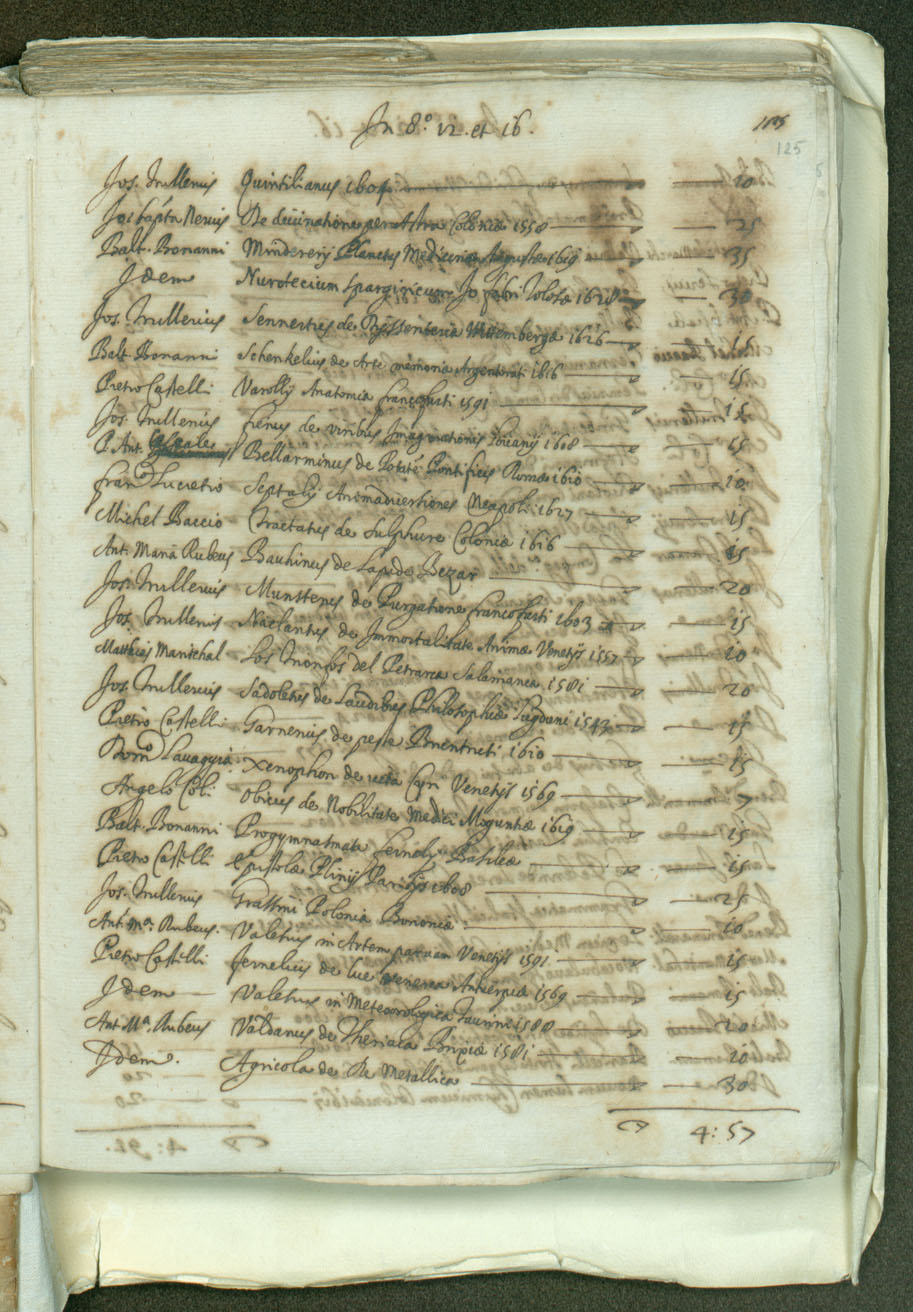 In 8.º 12. et 16.
125
Jos. Trullerius Quintilianus 1604. 20
Jo: bapta Nerius De divinatione per Astra Coloniæ 1558 25
Balt. Bonanni Mindererij Planctus Medicinæ Augustæ 1619 35
Idem Spargiricum Jo fabri Tolosæ 1628 30
Jos. Trullerius Sennertus de Dyssenteria Wittembergæ 1626
Balt. Bonanni Schenkelius de Arte memoriæ Argentorati 1616 15
Pietro Castelli Varolij Anatomia francofurti 1591 15
Jos. Trullerius fienus de viribus Imaginationis Lovanij 1608 15
P. Ant. Bellarminus de Potite Pontificis Romæ 1610 10
franco Lucretio Septalij Animadversiones Neapoli 1627 15
Michel Baccio Tractatus de Sulphure Coloniæ 1616 15
Ant. Maria Rubeus Bauhinus de Lapide Bezar 20
Jos. Trullerius Munsterus de Purgatione francofurti 1603 15
Jos. Trullerius Naclantus de Immortalitate Animæ Venetijs 1557 10
Matthias Marischal Los Trionfos del Petrarca Salamanca 1581 20
Jos. Trullerius Sadoletus de Laudibus Philosophiæ Lugduni 1543 15
Pietro Castelli Garnerius de peste Bruntruti 1610 15
Domo Lavaggia Xenophon de vita Cyri Venetijs 1569 7
Angelo Coli Obicius de Nobilitate Medici Moguntiæ 1619 15
Balt. Bonanni Progymnatmata fernelij Basileæ 15
Pietro Castelli Epistolæ Plinij Parisijs 1608 25
Jos. Trullerius Polonia Bononiæ 10
Ant. Ma. Rubeus. Valesius in Artem parvam Venetijs 1591 15
Pietro Castelli fernelius de lue venerea Antverpiæ 1569 15
Idem Valesius in Meteorologica Taurini 1588 20
Ant. Ma. Rubeus Valdanus de Theriaca Brixiæ 1581 20
Idem. Agricola de Re Metallica 30
4: 57